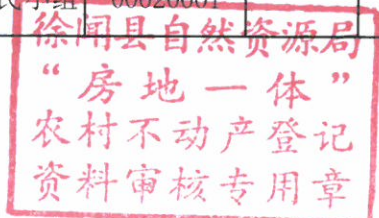 民小组 00020001
徐闻县自然资源局
“房地一体”
农村不动产登记
资料审核专用章